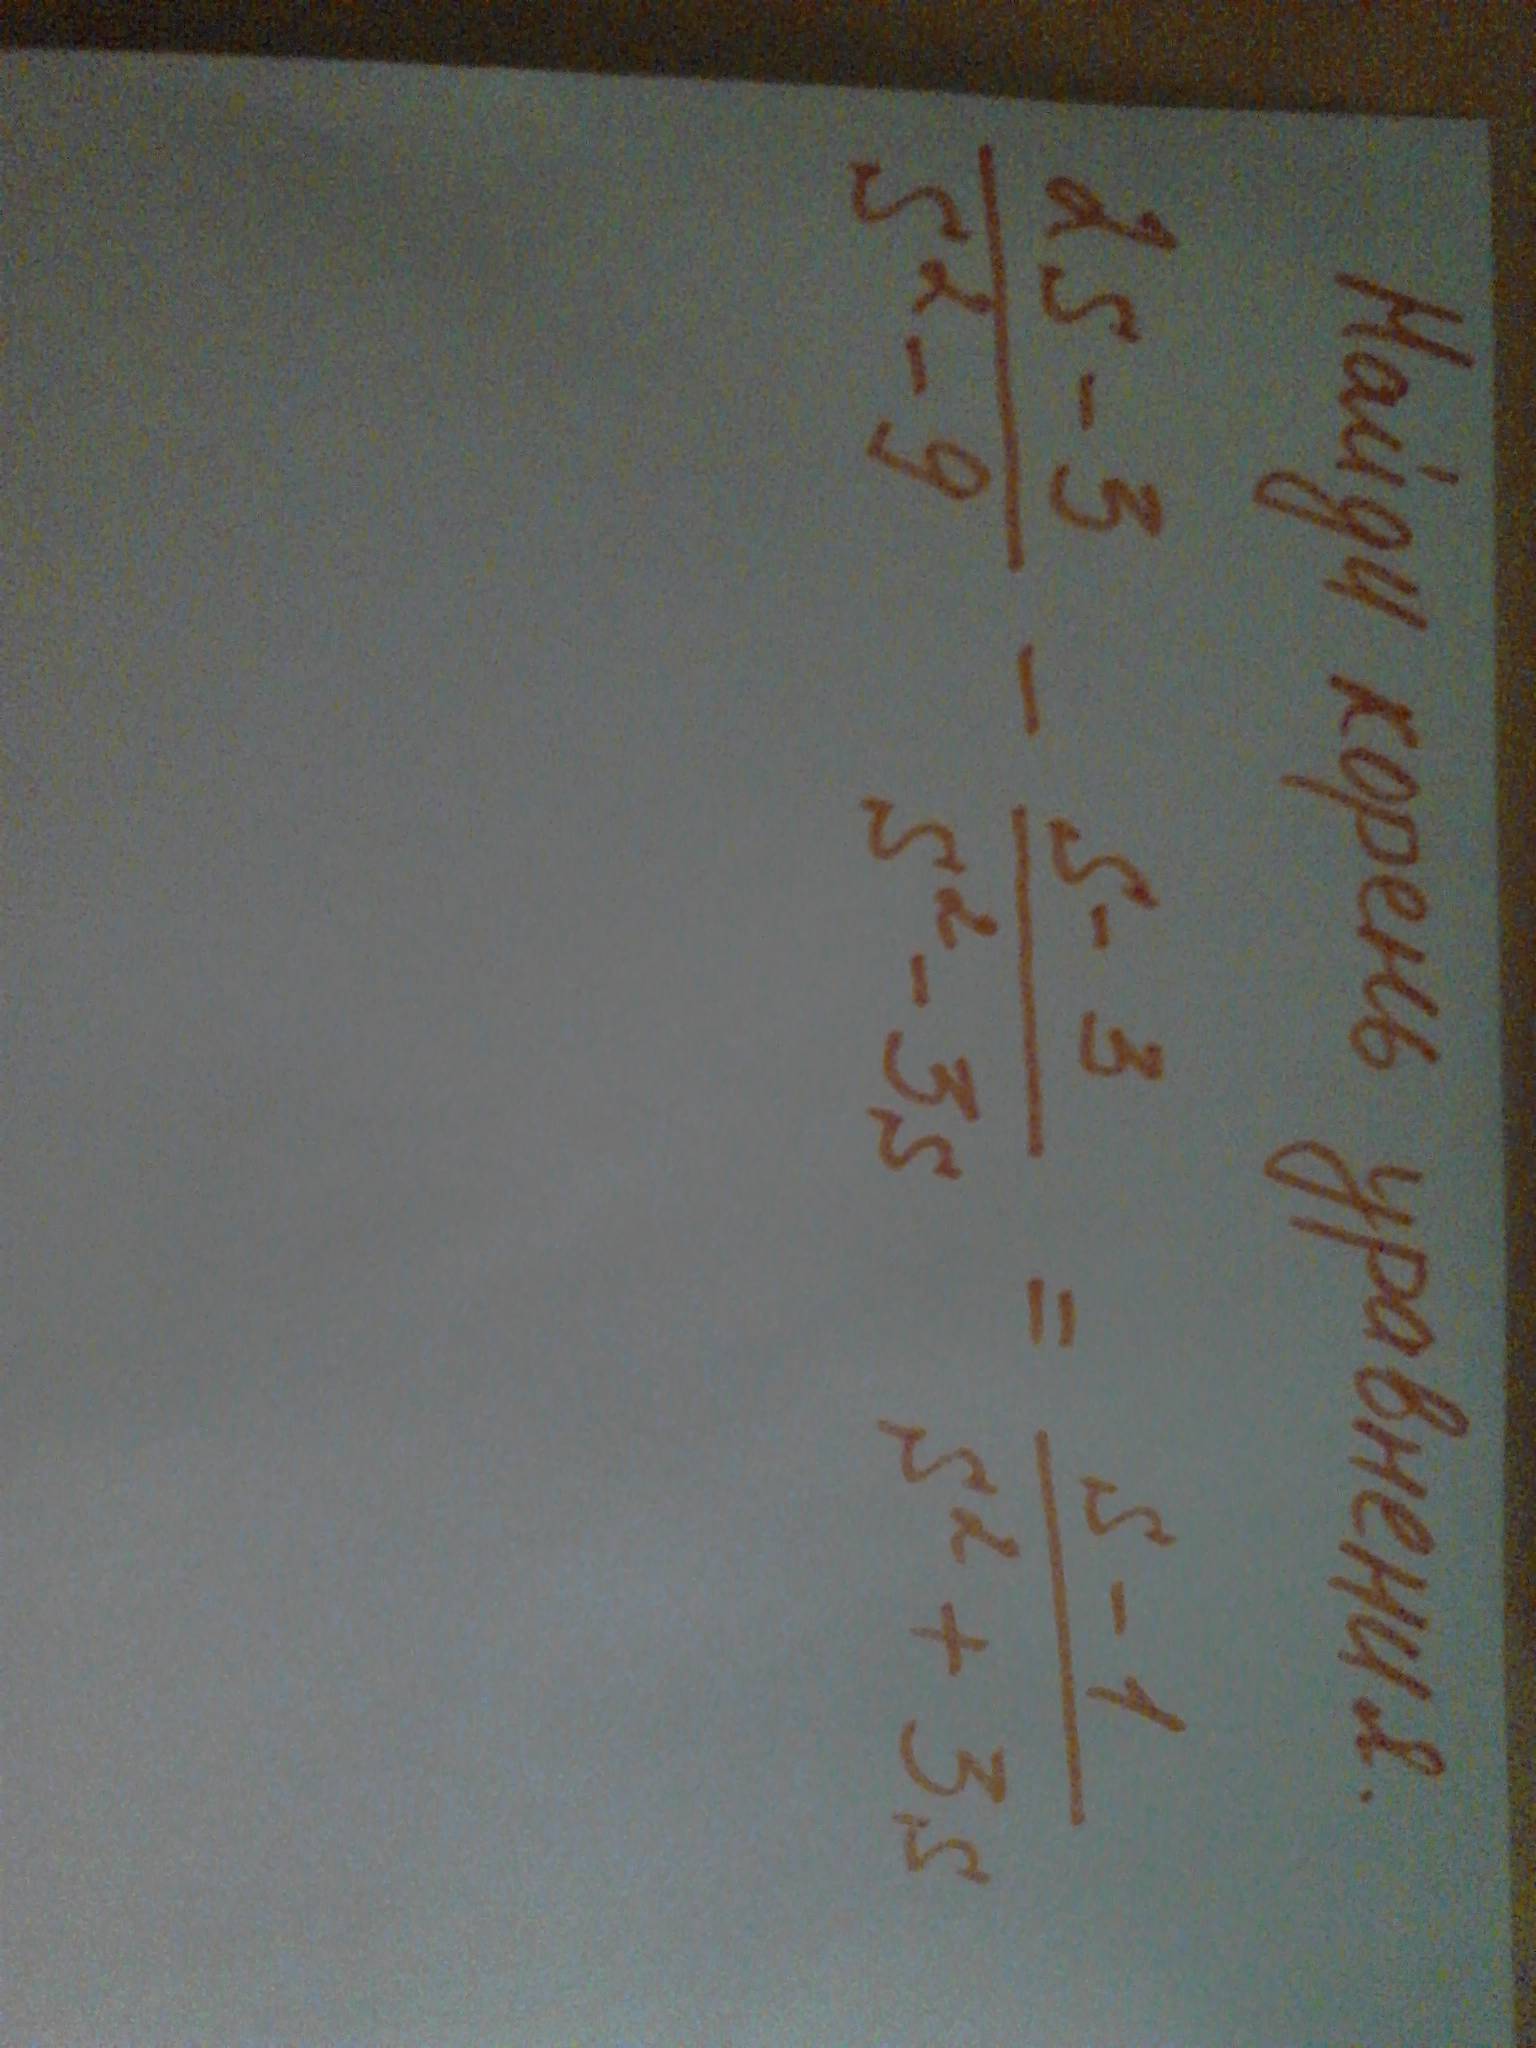 Найди корень уравнения.
(2s - 3)/(s² - 9) - (s - 3)/(s² - 3s) = (s - 1)/(s² + 3s)